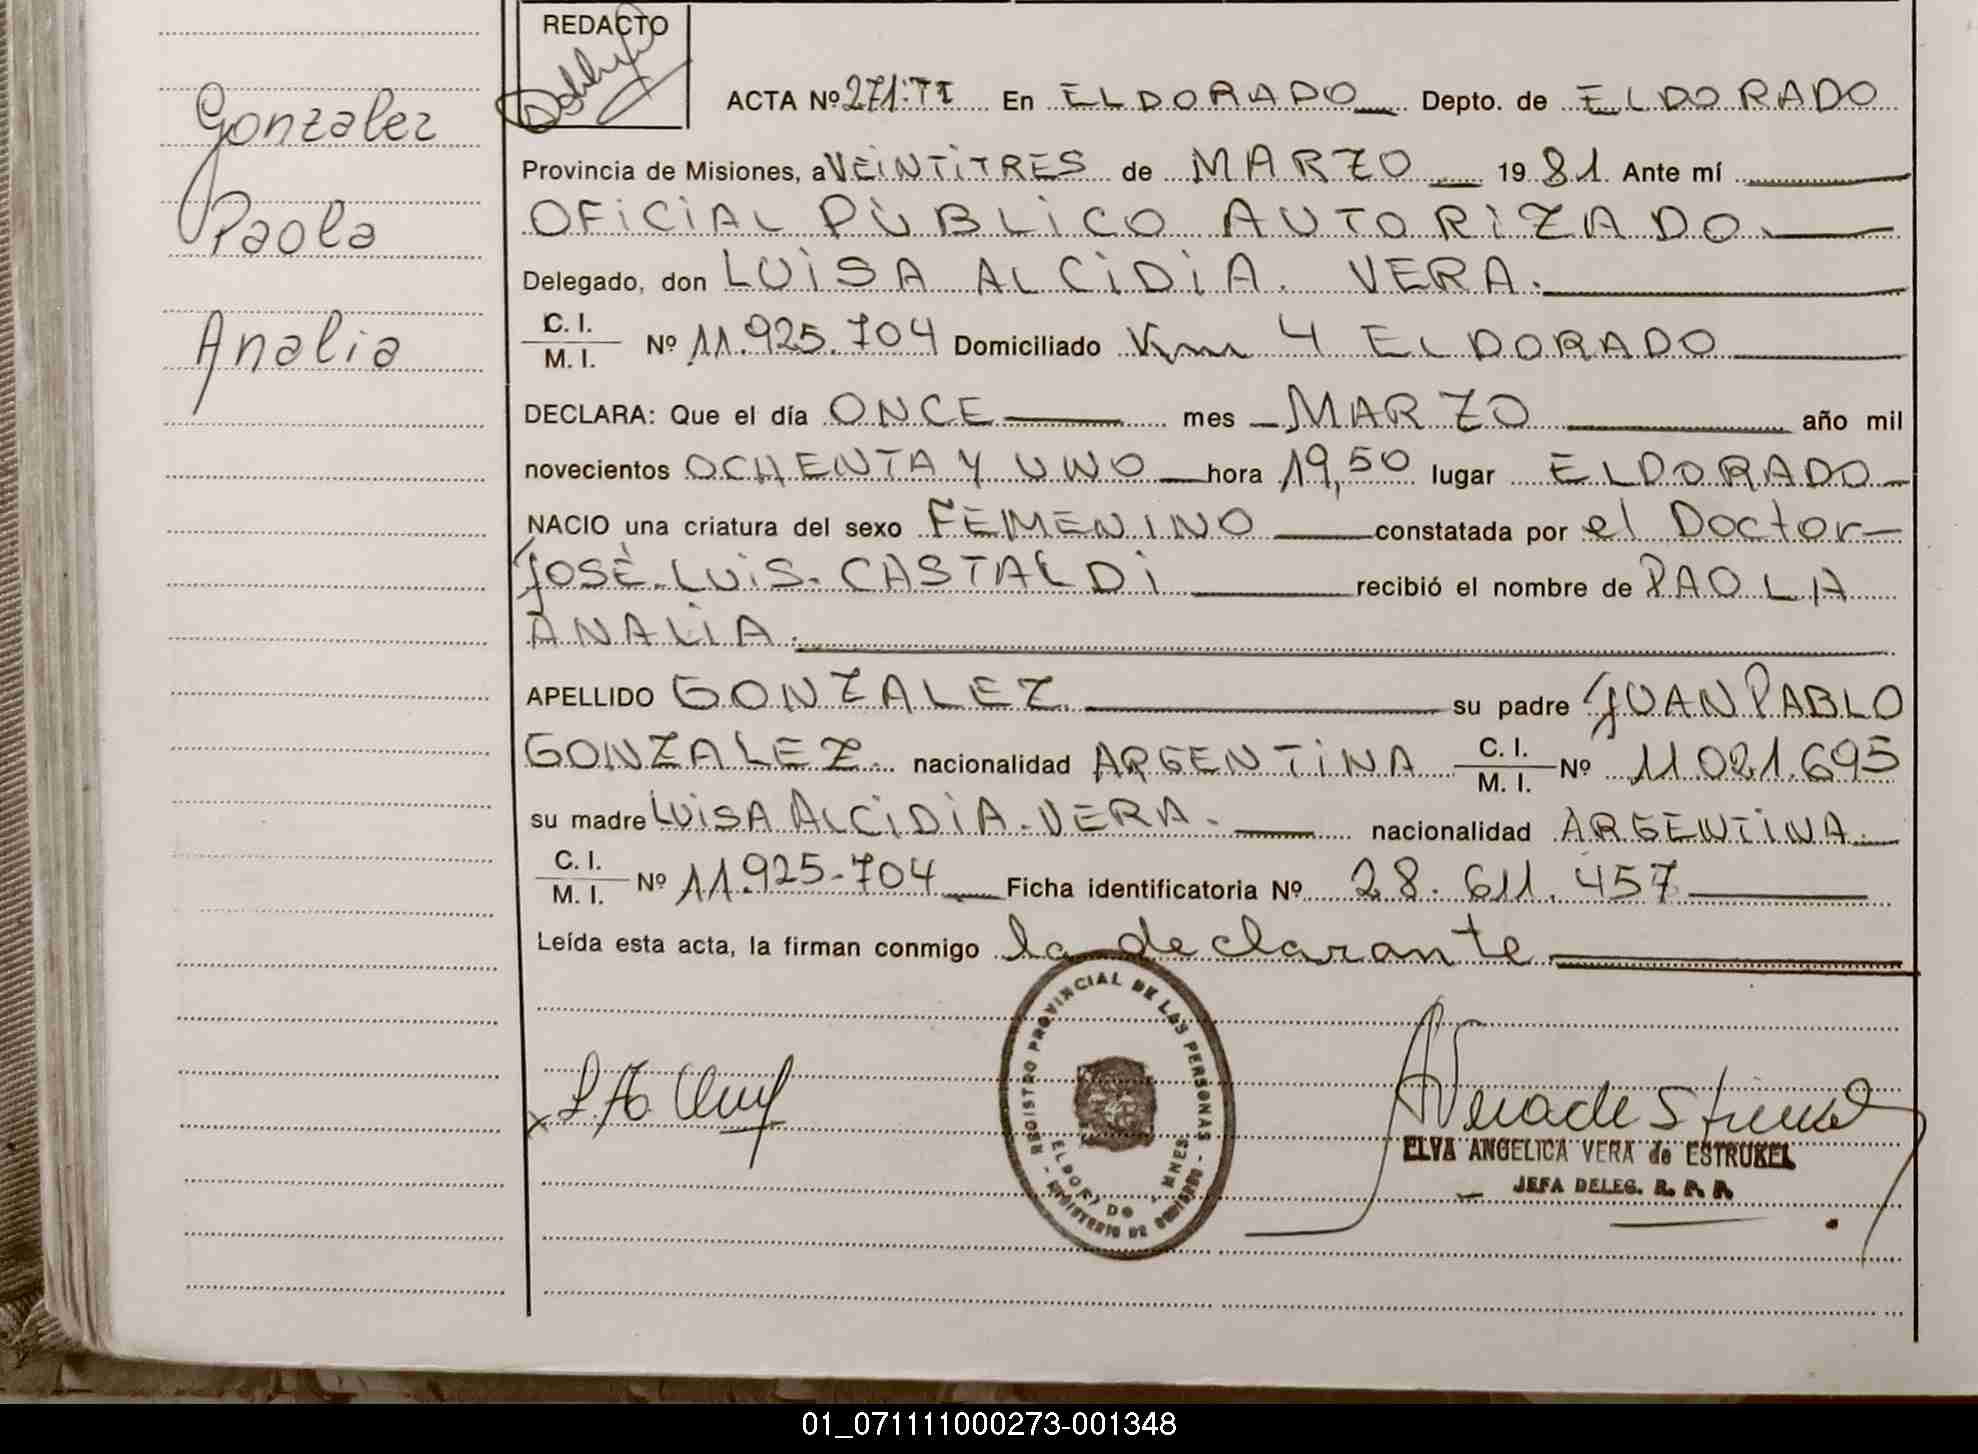 Gonzalez
Paola
Analia
REDACTO
ACTA Nº 271:TI En ELDORADO Depto. de ELDORADO
Provincia de Misiones, a VEINTITRES de MARZO 1981 Ante mí
OFICIAL PÙBLICO AUTORIZADO
Delegado, don LUISA ALCIDIA. VERA.
C. I.
M. I. Nº 11.925.704 Domiciliado Km 4 ELDORADO
DECLARA: Que el día ONCE mes MARZO año mil
novecientos OCHENTA Y UNO hora 19,50 lugar ELDORADO
NACIO una criatura del sexo FEMENINO constatada por el Doctor
JOSÈ LUIS. CASTALDI recibió el nombre de PAOLA
ANALIA.
APELLIDO GONZALEZ su padre JUAN PABLO
GONZALEZ nacionalidad ARGENTINA C. I. M. I. Nº 11021.695
su madre LUISA ALCIDIA. VERA. nacionalidad ARGENTINA.
C. I.
M. I. Nº 11.925-704 Ficha identificatoria Nº 28.611.457
Leída esta acta, la firman conmigo la declarante
REGISTRO PROVINCIAL DE LAS PERSONAS
MINISTERIO DE GOBIERNO
ELDORADO - MNES
ELVA ANGELICA VERA de ESTRUKEL
JEFA DELEG. R. P. P.
01_071111000273-001348